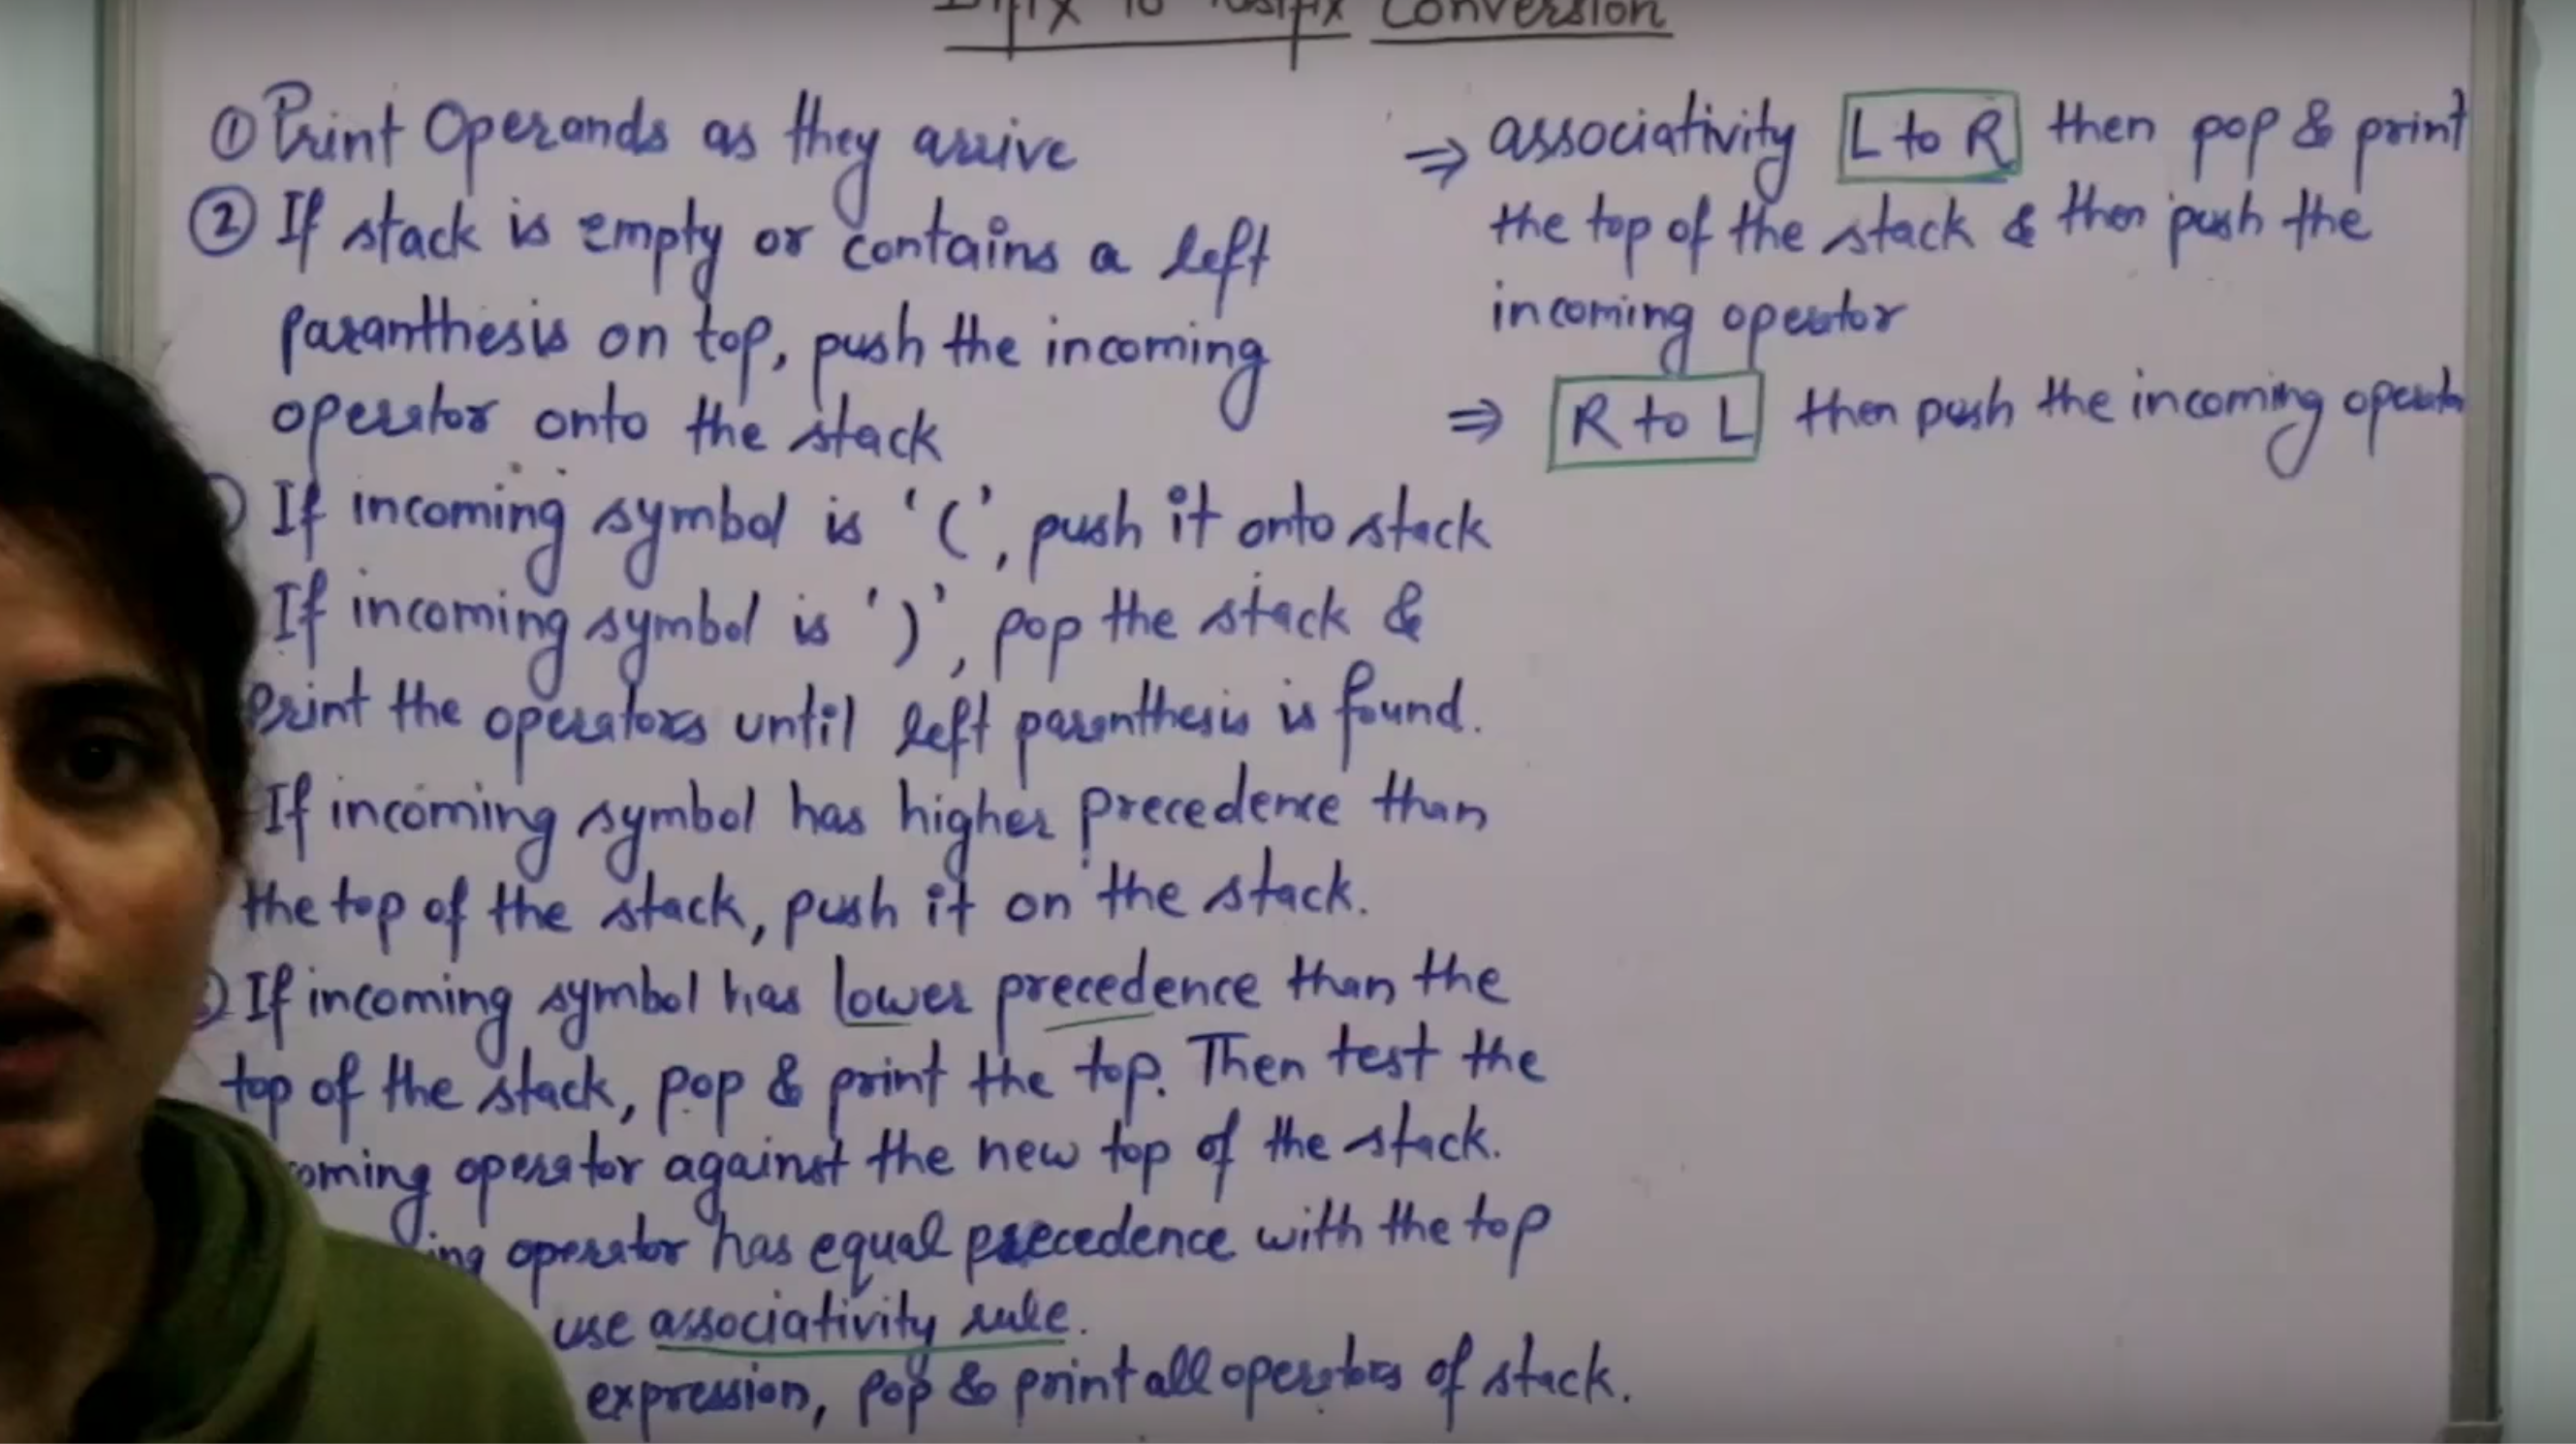 Infix to Postfix Conversion
① Print Operands as they arrive
② If stack is empty or contains a left
paranthesis on top, push the incoming
operator onto the stack
If incoming symbol is '(', push it onto stack
If incoming symbol is ')', pop the stack &
Print the operators until left parenthesis is found.
If incoming symbol has higher precedence than
the top of the stack, push it on the stack.
If incoming symbol has lower precedence than the
top of the stack, pop & print the top. Then test the
oming operator against the new top of the stack.
ing operator has equal precedence with the top
use associativity rule.
expression, pop & print all operators of stack.
⇒ associativity L to R then pop & print
the top of the stack & then push the
incoming operator
⇒ R to L then push the incoming operator